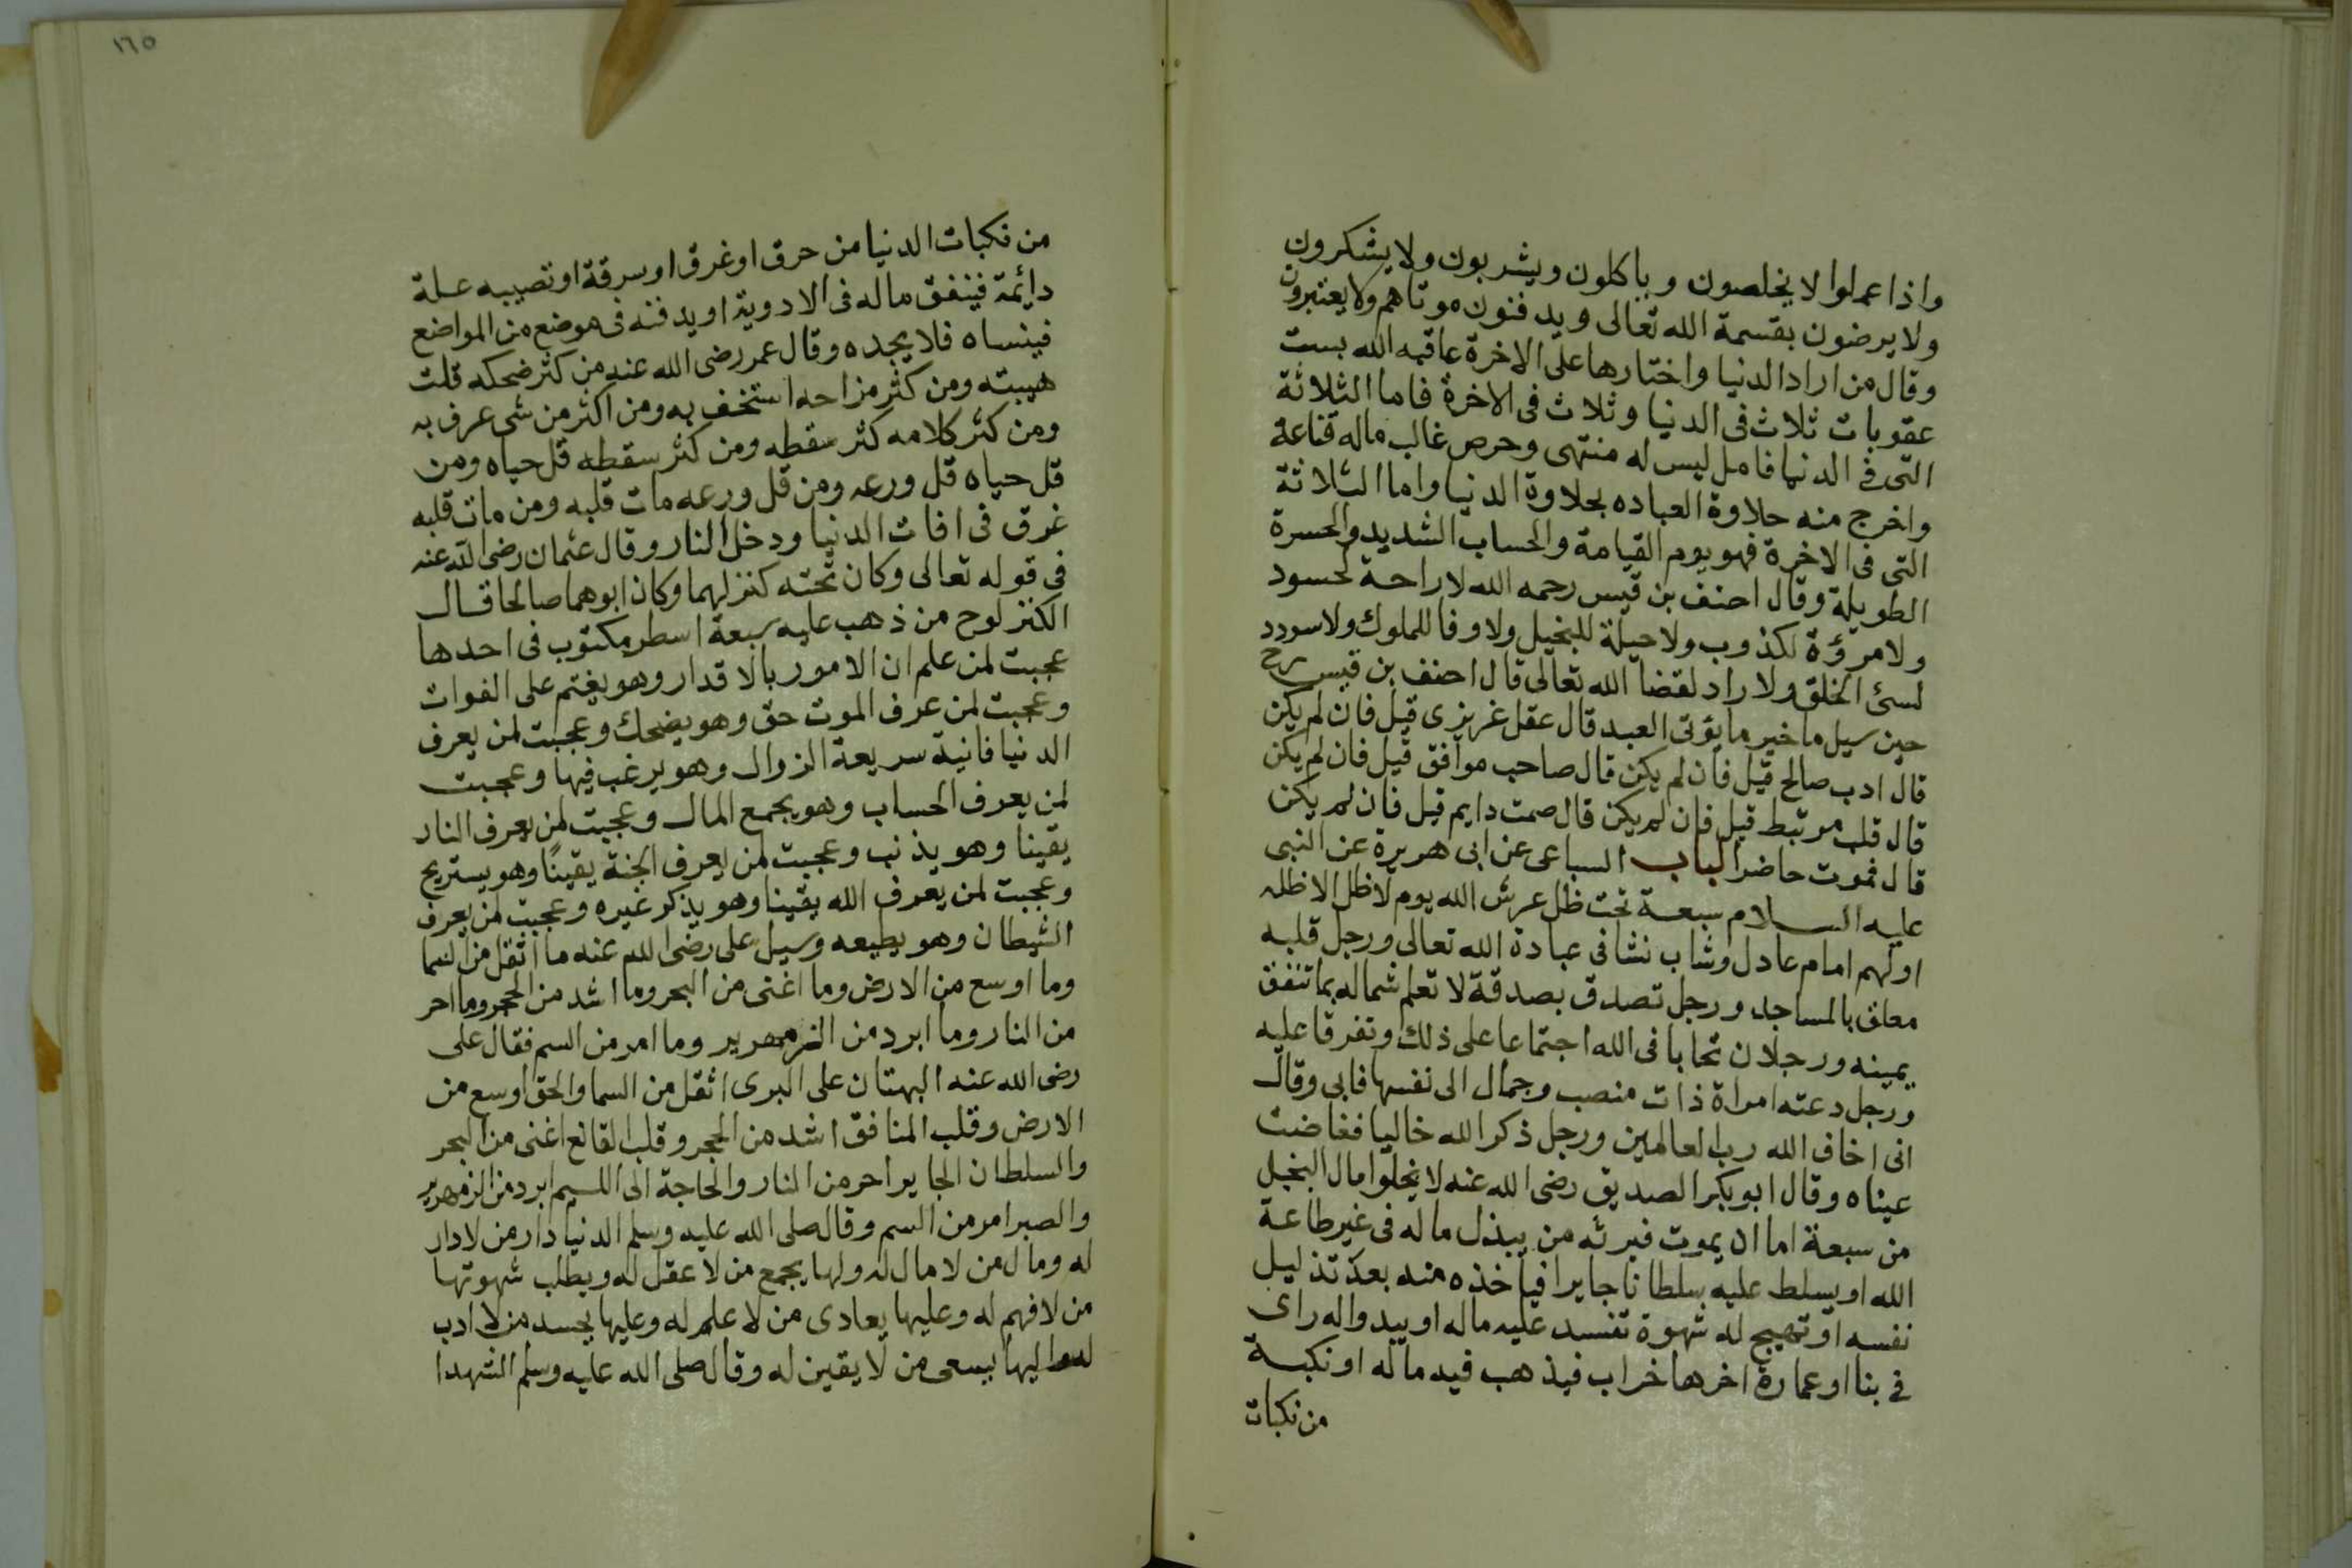 واذا عملوا لا يخلصون وياكلون ويشربون ولا يشكرون
ولا يرضون بقسمة الله تعالى ويدفنون موتاهم ولا يعتبرون
وقال من اراد الدنيا واختارها على الاخرة عاقبه الله بست
عقوبات ثلاث فى الدنيا وثلاث فى الاخرة فاما الثلاثة
التى فى الدنيا فامل ليس له منتهى وحرص غالب ماله قناعة
واخرج منه حلاوة العباده بحلاوة الدنيا واما الثلاثة
التى فى الاخرة فهو يوم القيامة والحساب الشديد والحسرة
الطويلة وقال احنف بن قيس رحمه الله لا راحة لحسود
ولا مروٴة لكذوب ولا حيلة للبخيل ولا وفا للملوك ولا سودد
لسئ الخلق ولا راد لقضا الله تعالى قال احنف بن قيس رح
حين سيل ما خير ما يؤتى العبد قال عقل غريزى قيل فان لم يكن
قال ادب صالح قيل فان لم يكن قال صاحب موافق قيل فان لم يكن
قال قلب مرتبط قيل فان لم يكن قال صمت دايم قيل فان لم يكن
قال فموت حاضر الباب السباعى عن ابى هريرة عن النبى
عليه السلام سبعة تحت ظل عرش الله يوم لا ظل الا ظله
اولهم امام عادل وشاب نشا فى عبادة الله تعالى ورجل قلبه
معلق بالمساجد ورجل تصدق بصدقة لا تعلم شماله بما تنفق
يمينه ورجلان تحابا فى الله اجتماعا على ذلك وتفرقا عليه
ورجل دعته امراة ذات منصب وجمال الى نفسها فابى وقال
انى اخاف الله رب العالمين ورجل ذكر الله خاليا ففاضت
عيناه وقال ابو بكر الصديق رضى الله عنه لا يخلوا مال البخيل
من سبعة اما ان يموت فيرثه من يبذل ماله فى غير طاعة
الله او يسلط عليه سلطانا جايرا فياخذه منه بعد تذليل
نفسه او تهيج له شهوة تفسد عليه ماله او يبدو اله راى
فى بنا او عمارة اخرها خراب فيذهب فيه ماله او نكبة
من نكبات
١٦٥
من نكبات الدنيا من حرق او غرق او سرقة او تصيبه علة
دائمة فينفق ماله فى الادوية او يدفنه فى موضع من المواضع
فينساه فلا يجده وقال عمر رضى الله عنه من كثر ضحكه قلت
هيبته ومن كثر مزاحه استخف به ومن اكثر من شى عرف به
ومن كثر كلامه كثر سقطه ومن كثر سقطه قل حياه ومن
قل حياه قل ورعه ومن قل ورعه مات قلبه ومن مات قلبه
غرق فى افات الدنيا ودخل النار وقال عثمان رضى الله عنه
فى قوله تعالى وكان تحته كنز لهما وكان ابوهما صالحا قال
الكنز لوح من ذهب عليه سبعة اسطر مكتوب فى احدها
عجبت لمن علم ان الامور بالاقدار وهو يغتم على الفوات
وعجبت لمن عرف الموت حق وهو يضحك وعجبت لمن يعرف
الدنيا فانية سريعة الزوال وهو يرغب فيها وعجبت
لمن يعرف الحساب وهو يجمع المال وعجبت لمن يعرف النار
يقينا وهو يذنب وعجبت لمن يعرف الجنة يقينًا وهو يستريح
وعجبت لمن يعرف الله يقينا وهو يذكر غيره وعجبت لمن يعرف
الشيطان وهو يطيعه وسيل على رضى الله عنه ما اثقل من السما
وما اوسع من الارض وما اغنى من البحر وما اشد من الحجر وما احر
من النار وما ابرد من الزمهرير وما امر من السم فقال على
رضى الله عنه البهتان على البرى اثقل من السما والحق اوسع من
الارض وقلب المنافق اشد من الحجر وقلب القانع اغنى من البحر
والسلطان الجاير احر من النار والحاجة الى اللييم ابرد من الزمهرير
والصبر امر من السم وقال صلى الله عليه وسلم الدنيا دار من لا دار
له ومال من لا مال له ولها يجمع من لا عقل له ويطلب شهوتها
من لا فهم له وعليها يعادى من لا علم له وعليها يحسد من لا ادب
له واليها يسعى من لا يقين له وقال صلى الله عليه وسلم الشهدا